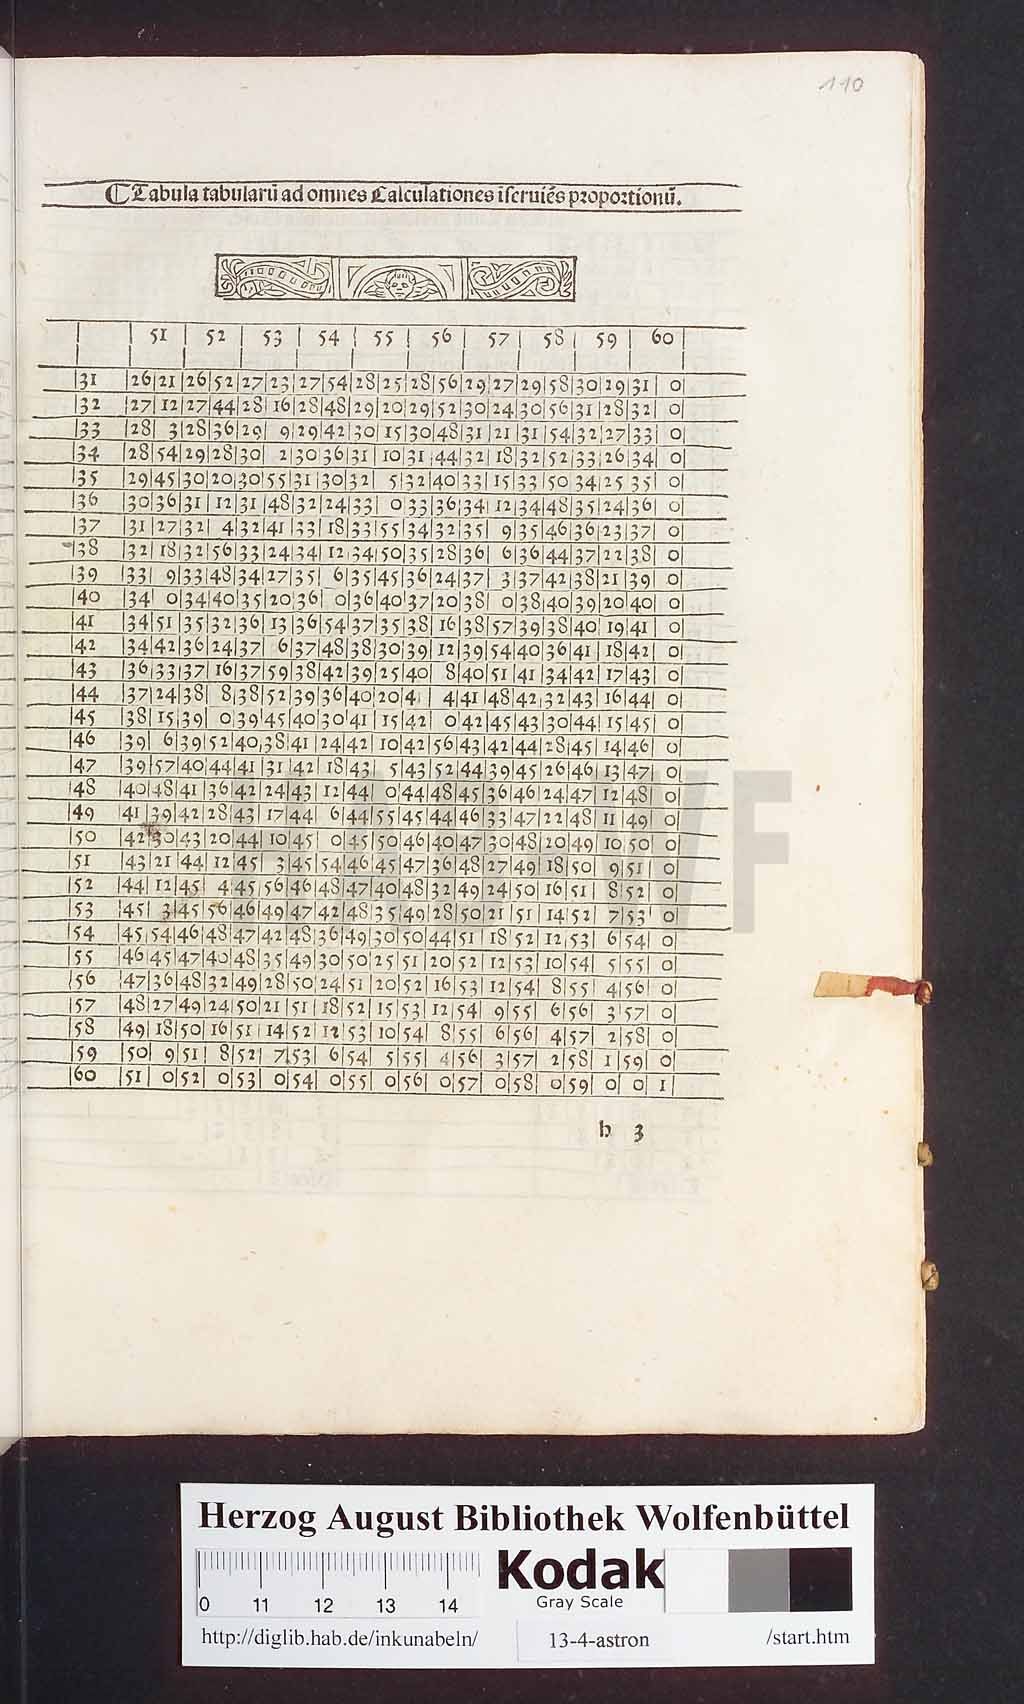 110
☾ Tabula tabularū ad omnes Calculationes ĩſeruiẽs pꝛopoꝛtionū.
51 52 53 54 55 56 57 58 59 60
31 26 21 26 52 27 23 27 54 28 25 28 56 29 27 29 58 30 29 31 0
32 27 12 27 44 28 16 28 48 29 20 29 52 30 24 30 56 31 28 32 0
33 28 3 28 36 29 9 29 42 30 15 30 48 31 21 31 54 32 27 33 0
34 28 54 29 28 30 2 30 36 31 10 31 44 32 18 32 52 33 26 34 0
35 29 45 30 20 30 55 31 30 32 5 32 40 33 15 33 50 34 25 35 0
36 30 36 31 12 31 48 32 24 33 0 33 36 34 12 34 48 35 24 36 0
37 31 27 32 4 32 41 33 18 33 55 34 32 35 9 35 46 36 23 37 0
38 32 18 32 56 33 24 34 12 34 50 35 28 36 6 36 44 37 22 38 0
39 33 9 33 48 34 27 35 6 35 45 36 24 37 3 37 42 38 21 39 0
40 34 0 34 40 35 20 36 0 36 40 37 20 38 0 38 40 39 20 40 0
41 34 51 35 32 36 13 36 54 37 35 38 16 38 57 39 38 40 19 41 0
42 34 42 36 24 37 6 37 48 38 30 39 12 39 54 40 36 41 18 42 0
43 36 33 37 16 37 59 38 42 39 25 40 8 40 51 41 34 42 17 43 0
44 37 24 38 8 38 52 39 36 40 20 4 4 41 48 42 32 43 16 44 0
45 38 15 39 0 39 45 40 30 41 15 42 0 42 45 43 30 44 15 45 0
46 39 6 39 52 40 38 41 24 42 10 42 56 43 42 44 28 45 14 46 0
47 39 57 40 44 41 31 42 18 43 5 43 52 44 39 45 26 46 13 47 0
48 40 48 41 36 42 24 43 12 44 0 44 48 45 36 46 24 47 12 48 0
49 41 39 42 28 43 17 44 6 44 55 45 44 46 33 47 22 48 11 49 0
50 42 30 43 20 44 10 45 0 45 50 46 40 47 30 48 20 49 10 50 0
51 43 21 44 12 45 3 45 54 46 45 47 36 48 27 49 18 50 9 51 0
52 44 12 45 4 45 56 46 48 47 40 48 32 49 24 50 16 51 8 52 0
53 45 3 45 56 46 49 47 42 48 35 49 28 50 21 51 14 52 7 53 0
54 45 54 46 48 47 42 48 36 49 30 50 44 51 18 52 12 53 6 54 0
55 46 45 47 40 48 35 49 30 50 25 51 20 52 12 53 10 54 5 55 0
56 47 36 48 32 49 28 50 24 51 20 52 16 53 12 54 8 55 4 56 0
57 48 27 49 24 50 21 51 18 52 15 53 12 54 9 55 6 56 3 57 0
58 49 18 50 16 51 14 52 12 53 10 54 8 55 6 56 4 57 2 58 0
59 50 9 51 8 52 7 53 6 54 5 55 4 56 3 57 2 58 1 59 0
60 51 0 52 0 53 0 54 0 55 0 56 0 57 0 58 0 59 0 0 1
h 3
Herzog August Bibliothek Wolfenbüttel
0 11 12 13 14
Kodak
Gray Scale
http://diglib.hab.de/inkunabeln/ 13-4-astron /start.htm